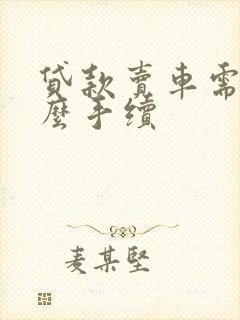 貸款賣車需
麼手續
麦某堅